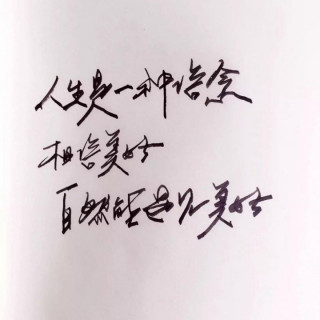 人生是一种信念
相信美好
自然能遇见美好